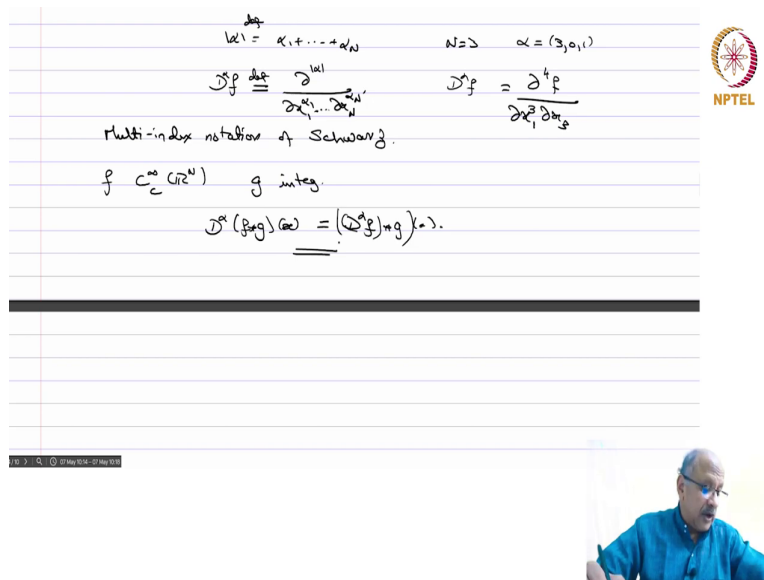 |α| def= α₁+⋯+αN N=3 α=(3,0,1)
Dᵅf def= ∂^|α| / ∂x₁^α₁…∂xN^αN Dᵅf = ∂⁴f / ∂x₁³∂x₃
Multi-index notation of Schwarz.
f C_c^∞(ℝᴺ) g integ.
Dᵅ(f*g)(x) = ((Dᵅf)*g)(x).
NPTEL
/10 07 May 10:14--07 May 10:18